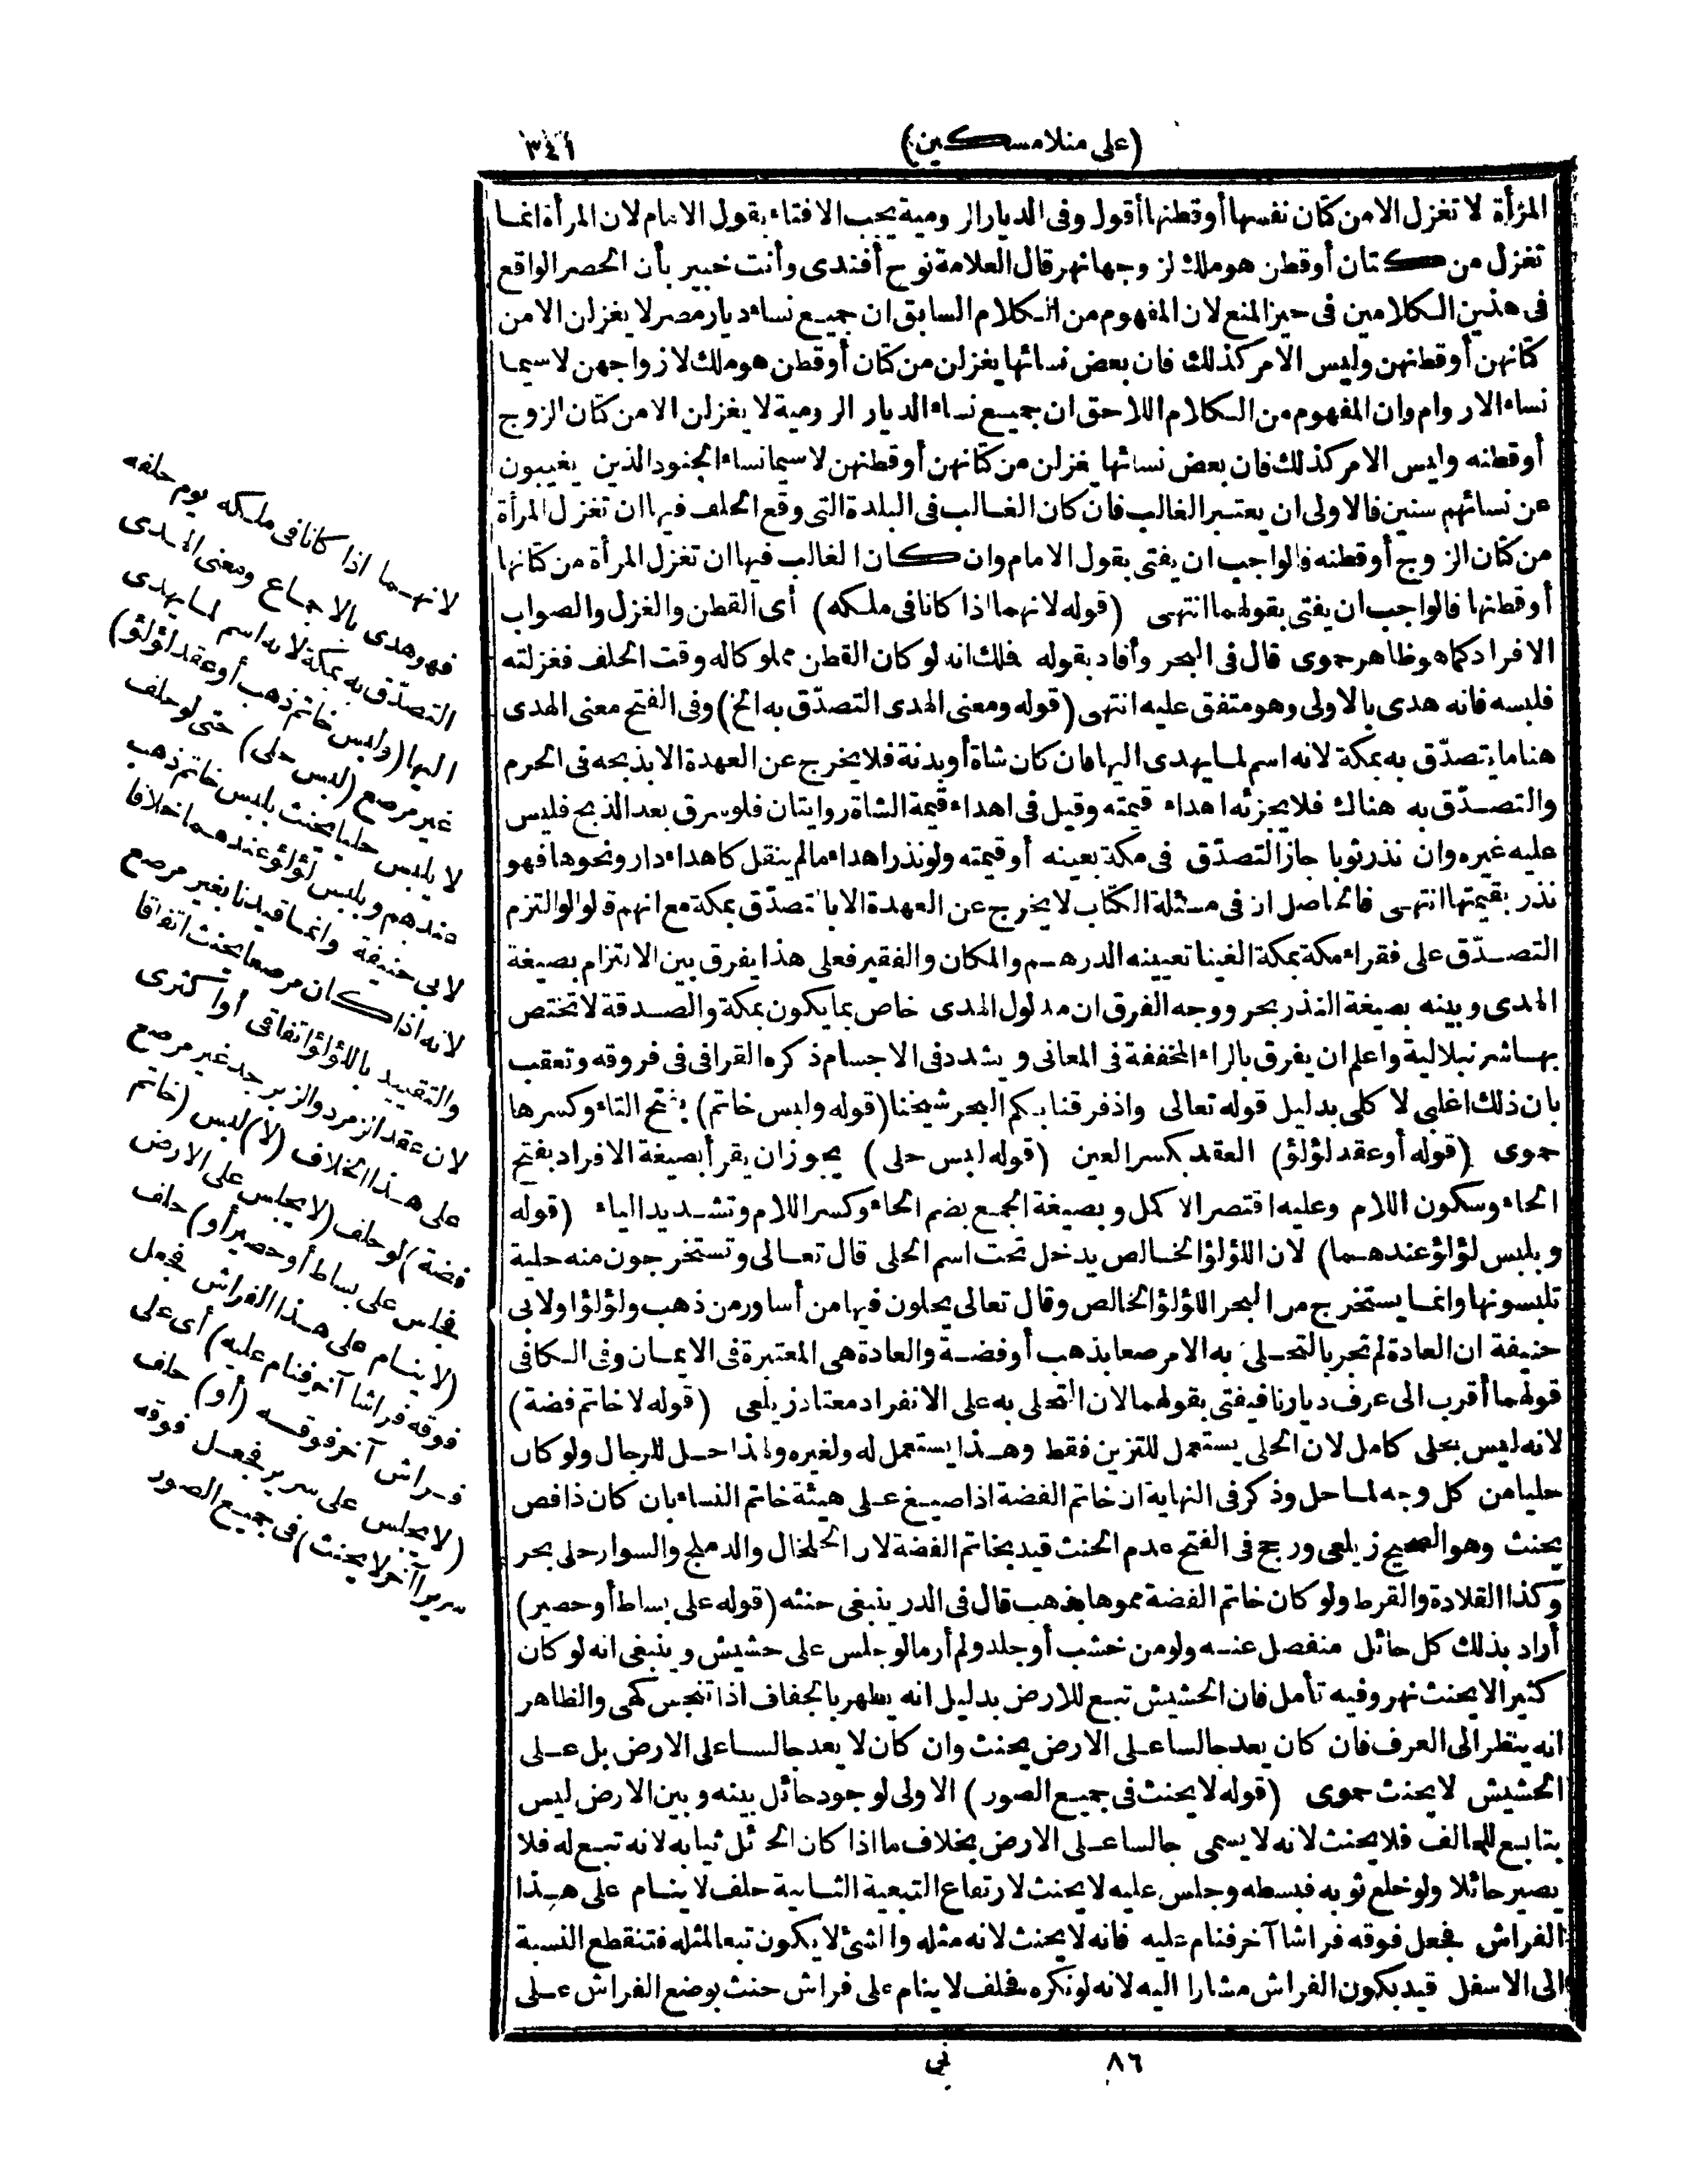 (على منلا مسكين)
٣٤١
المرأة لا تغزل الا من كتان نفسها أو قطنها أقول وفى الديار الرومية يجب الافتاء بقول الامام لان المرأة انما
تغزل من كتان أو قطن هو ملك لزوجها نهر قال العلامة نوح أفندى وأنت خبير بأن الحصر الواقع
فى هذين الكلامين فى حيز المنع لان المفهوم من الكلام السابق ان جميع نساء ديار مصر لا يغزلن الا من
كتانهن أو قطنهن وليس الامر كذلك فان بعض نسائها يغزلن من كتان أو قطن هو ملك لازواجهن لاسيما
نساء الاروام وان المفهوم من الكلام اللاحق ان جميع نساء الديار الرومية لا يغزلن الا من كتان الزوج
أو قطنه وليس الامر كذلك فان بعض نسائها يغزلن من كتانهن أو قطنهن لاسيما نساء الجنود الذين يغيبون
عن نسائهم سنين فالاولى ان يعتبر الغالب فان كان الغالب فى البلدة التى وقع الحلف فيها ان تغزل المرأة
من كتان الزوج أو قطنه فالواجب ان يفتى بقول الامام وان كان الغالب فيها ان تغزل المرأة من كتانها
أو قطنها فالواجب ان يفتى بقولهما انتهى (قوله لانهما اذا كانا فى ملكه) أى القطن والغزل والصواب
الافراد كما هو ظاهر حموى قال فى البحر وأفاد بقوله فلك انه لو كان القطن مملوكا له وقت الحلف فغزلته
فلبسه فانه هدى بالاولى وهو متفق عليه انتهى (قوله ومعنى الهدى التصدّق به الخ) وفى الفتح معنى الهدى
هنا ما يتصدّق به بمكة لانه اسم لما يهدى اليها فان كان شاة أو بدنة فلا يخرج عن العهدة الا بذبحه فى الحرم
والتصدّق به هناك فلا يجزئه اهداء قيمته وقيل فى اهداء قيمة الشاة روايتان فلو سرق بعد الذبح فليس
عليه غيره وان نذر ثوبا جاز التصدّق فى مكة بعينه أو قيمته ولو نذر اهداء ما لم ينقل كاهداء دار ونحوها فهو
نذر بقيمتها انتهى فالحاصل ان فى مسئلة الكتاب لا يخرج عن العهدة الا بالتصدّق بمكة مع انهم قالوا لو التزم
التصدّق على فقراء مكة بمكة الغينا تعيينه الدرهم والمكان والفقير فعلى هذا يفرق بين الالتزام بصيغة
الهدى وبينه بصيغة النذر بحر ووجه الفرق ان مدلول الهدى خاص بما يكون بمكة والصدقة لا تختص
بها شرنبلالية واعلم ان يفرق بالراء المخففة فى المعانى ويشدد فى الاجسام ذكره القرافى فى فروقه وتعقب
بان ذلك اغلبى لا كلى بدليل قوله تعالى واذ فرقنا بكم البحر شيخنا (قوله ولبس خاتم) بفتح التاء وكسرها
حموى (قوله أو عقد لؤلؤ) العقد بكسر العين (قوله لبس حلى) يجوز ان يقرأ بصيغة الافراد بفتح
الحاء وسكون اللام وعليه اقتصر الاكمل وبصيغة الجمع بضم الحاء وكسر اللام وتشديد الياء (قوله
وبلبس لؤلؤ عندهما) لان اللؤلؤ الخالص يدخل تحت اسم الحلى قال تعالى وتستخرجون منه حلية
تلبسونها وانما يستخرج من البحر اللؤلؤ الخالص وقال تعالى يحلون فيها من أساور من ذهب ولؤلؤا ولابى
حنيفة ان العادة لم تجر بالتحلى به الا مرصعا بذهب أو فضة والعادة هى المعتبرة فى الايمان وفى الكافى
قولهما أقرب الى عرف ديارنا فيفتى بقولهما لان التحلى به على الانفراد معتاد زيلعى (قوله لا خاتم فضة)
لانه ليس بحلى كامل لان الحلى يستعمل للتزين فقط وهذا يستعمل له ولغيره ولهذا حل للرجال ولو كان
حليا من كل وجه لما حل وذكر فى النهاية ان خاتم الفضة اذا صيغ على هيئة خاتم النساء بان كان ذا فص
يحنث وهو الصحيح زيلعى ورجح فى الفتح عدم الحنث قيد بخاتم الفضة لان الخلخال والدملج والسوار حلى بحر
وكذا القلادة والقرط ولو كان خاتم الفضة مموها بذهب قال فى الدر ينبغى حنثه (قوله على بساط أو حصير)
أراد بذلك كل حائل منفصل عنه ولو من خشب أو جلد ولم أر ما لو جلس على حشيش وينبغى انه لو كان
كثيرا لا يحنث نهر وفيه تأمل فان الحشيش تبع للارض بدليل انه يطهر بالجفاف اذا تنجس كهى والظاهر
انه ينظر الى العرف فان كان يعد جالسا على الارض يحنث وان كان لا يعد جالسا على الارض بل على
الحشيش لا يحنث حموى (قوله لا يحنث فى جميع الصور) الاولى لوجود حائل بينه وبين الارض ليس
بتابع للحالف فلا يحنث لانه لا يسمى جالسا على الارض بخلاف ما اذا كان الحائل ثيابه لانه تبع له فلا
يصير حائلا ولو خلع ثوبه فبسطه وجلس عليه لا يحنث لارتفاع التبعية الثانية حلف لا ينام على هذا
الفراش فجعل فوقه فراشا آخر فنام عليه فانه لا يحنث لانه مثله والشئ لا يكون تبعا لمثله فتنقطع النسبة
الى الاسفل قيد بكون الفراش مشارا اليه لانه لو نكره فحلف لا ينام على فراش حنث بوضع الفراش على
لانهما اذا كانا فى ملكه يوم حلفه
فهو هدى بالاجماع ومعنى الهدى
التصدّق به بمكة لانه اسم لما يهدى
اليها (ولبس خاتم ذهب أو عقد لؤلؤ)
غير مرصع (لبس حلى) حتى لو حلف
لا يلبس حليا يحنث بلبس خاتم ذهب
عندهم وبلبس لؤلؤ عندهما خلافا
لابى حنيفة وانما قيدنا بغير مرصع
لانه اذا كان مرصعا يحنث اتفاقا
والتقييد باللؤلؤ اتفاقى أو اكثرى
لان عقد الزمرد والزبرجد غير مرصع
على هذا الخلاف (لا) لبس (خاتم
فضة) لو حلف (لا يجلس على الارض
فجلس على بساط أو حصير أو) حلف
(لا ينام على هذا الفراش فجعل
فوقه فراشا آخر فنام عليه) أى على
فراش آخر فوقه (أو) حلف
(لا يجلس على سرير فجعل فوقه
سريرا آخر لا يحنث) فى جميع الصور
٨٦
نى